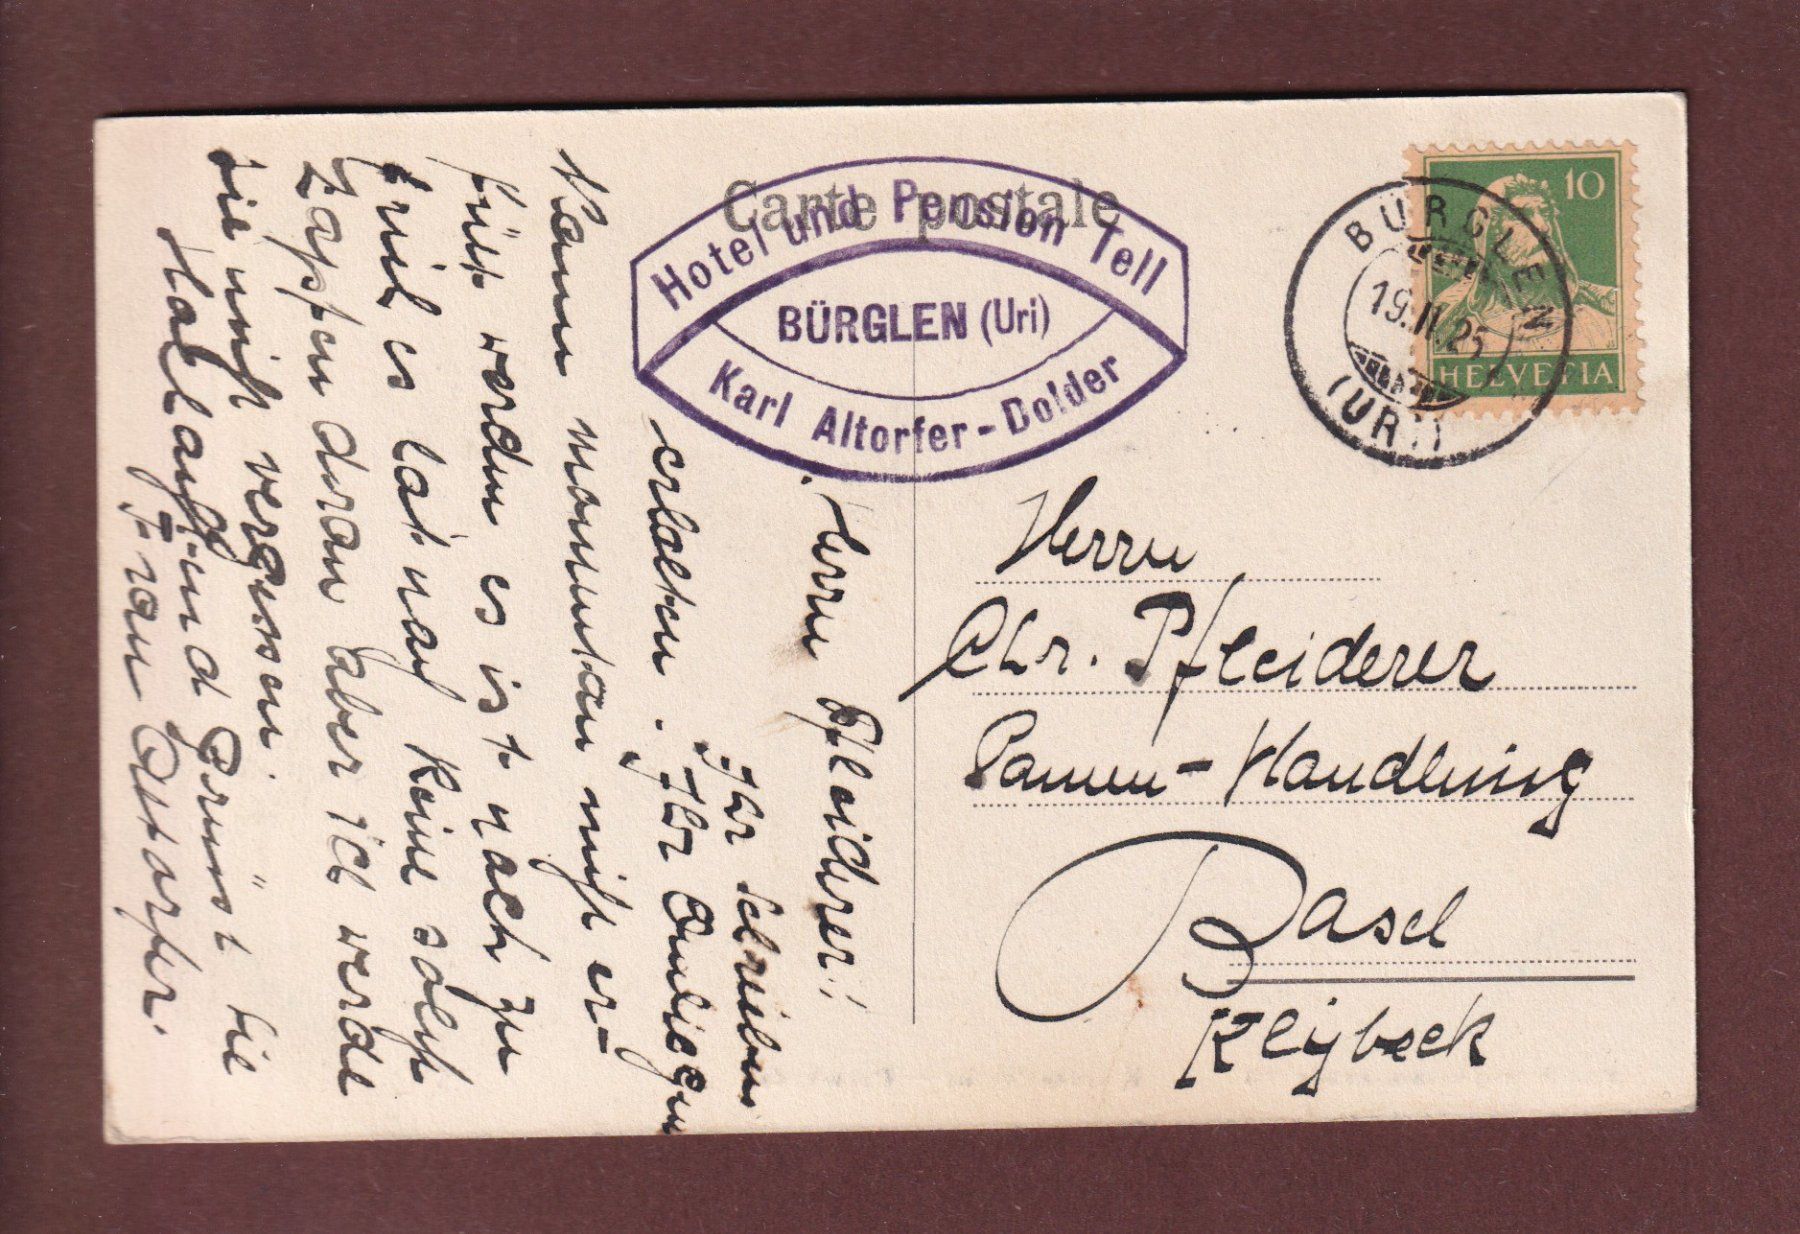 Carte postale
Hotel und Pension Tell
BÜRGLEN (Uri)
Karl Altorfer-Dolder
BÜRGLEN
19.II.25
(URI)
10
HELVETIA
Herrn
Chr. Pfleiderer
Samen-Handlung
Basel
Kleybeck
Herrn Pfleiderer!
Ihr Schreiben
erhalten. Ihr Anliegen
Kann momentan nicht er-
füllt werden es ist noch zu
früh es hat noch keine solch
Zapfen daran aber ich werde
sie nicht vergessen.
Hochachtend Grüsst Sie
Frau Altorfer.